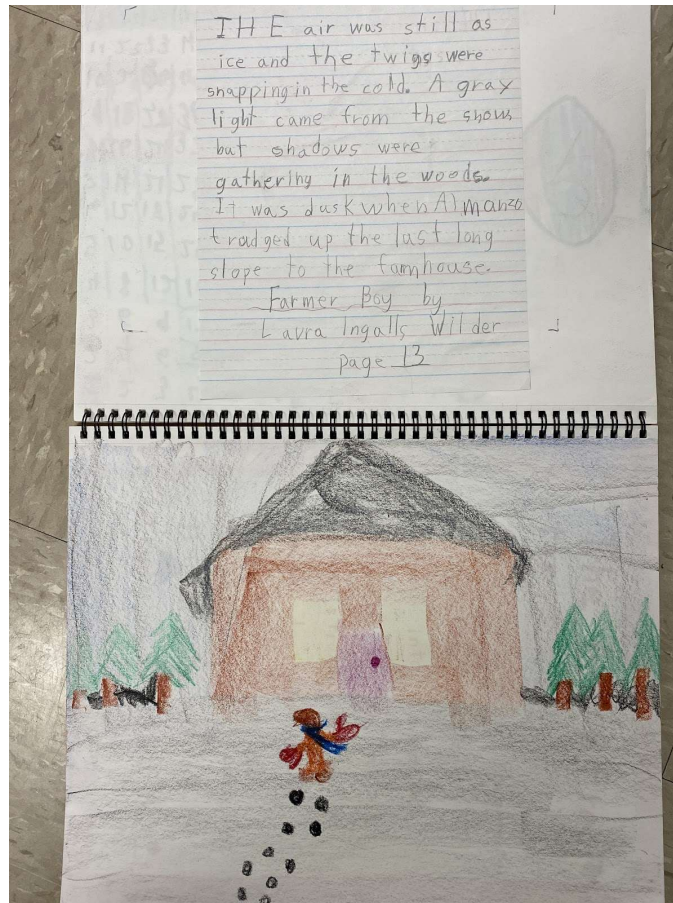 THE air was still as
ice and the twigs were
snapping in the cold. A gray
light came from the snow,
but shadows were
gathering in the woods.
It was dusk when Almanzo
trudged up the last long
slope to the farmhouse.
Farmer Boy by
Laura Ingalls Wilder
page 13